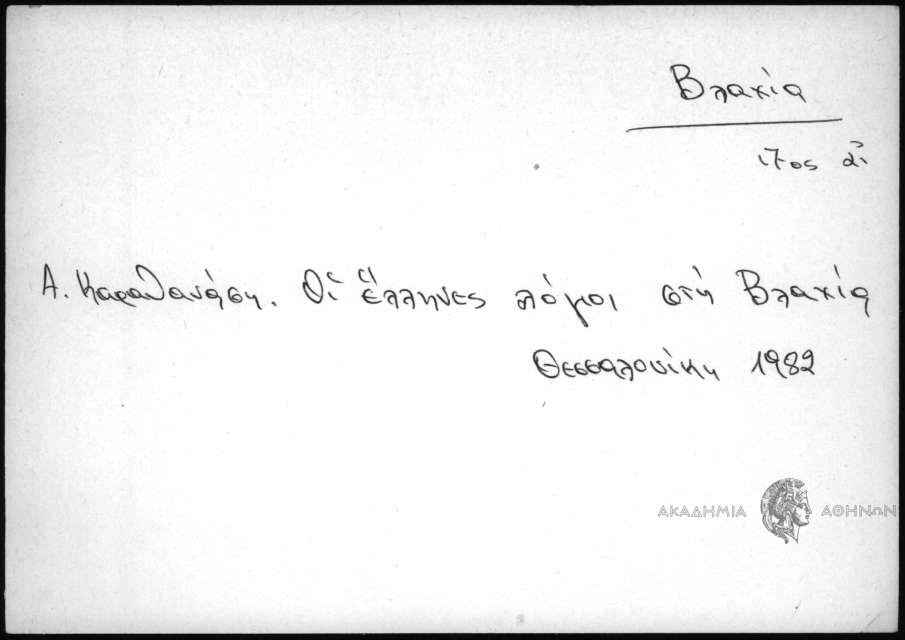 Βλαχία
17ος αἰ
Α. Καραθανάση. Οἱ Ἕλληνες λόγιοι στή Βλαχία
Θεσσαλονίκη 1982
ΑΚΑΔΗΜΙΑ ΑΘΗΝΩΝ